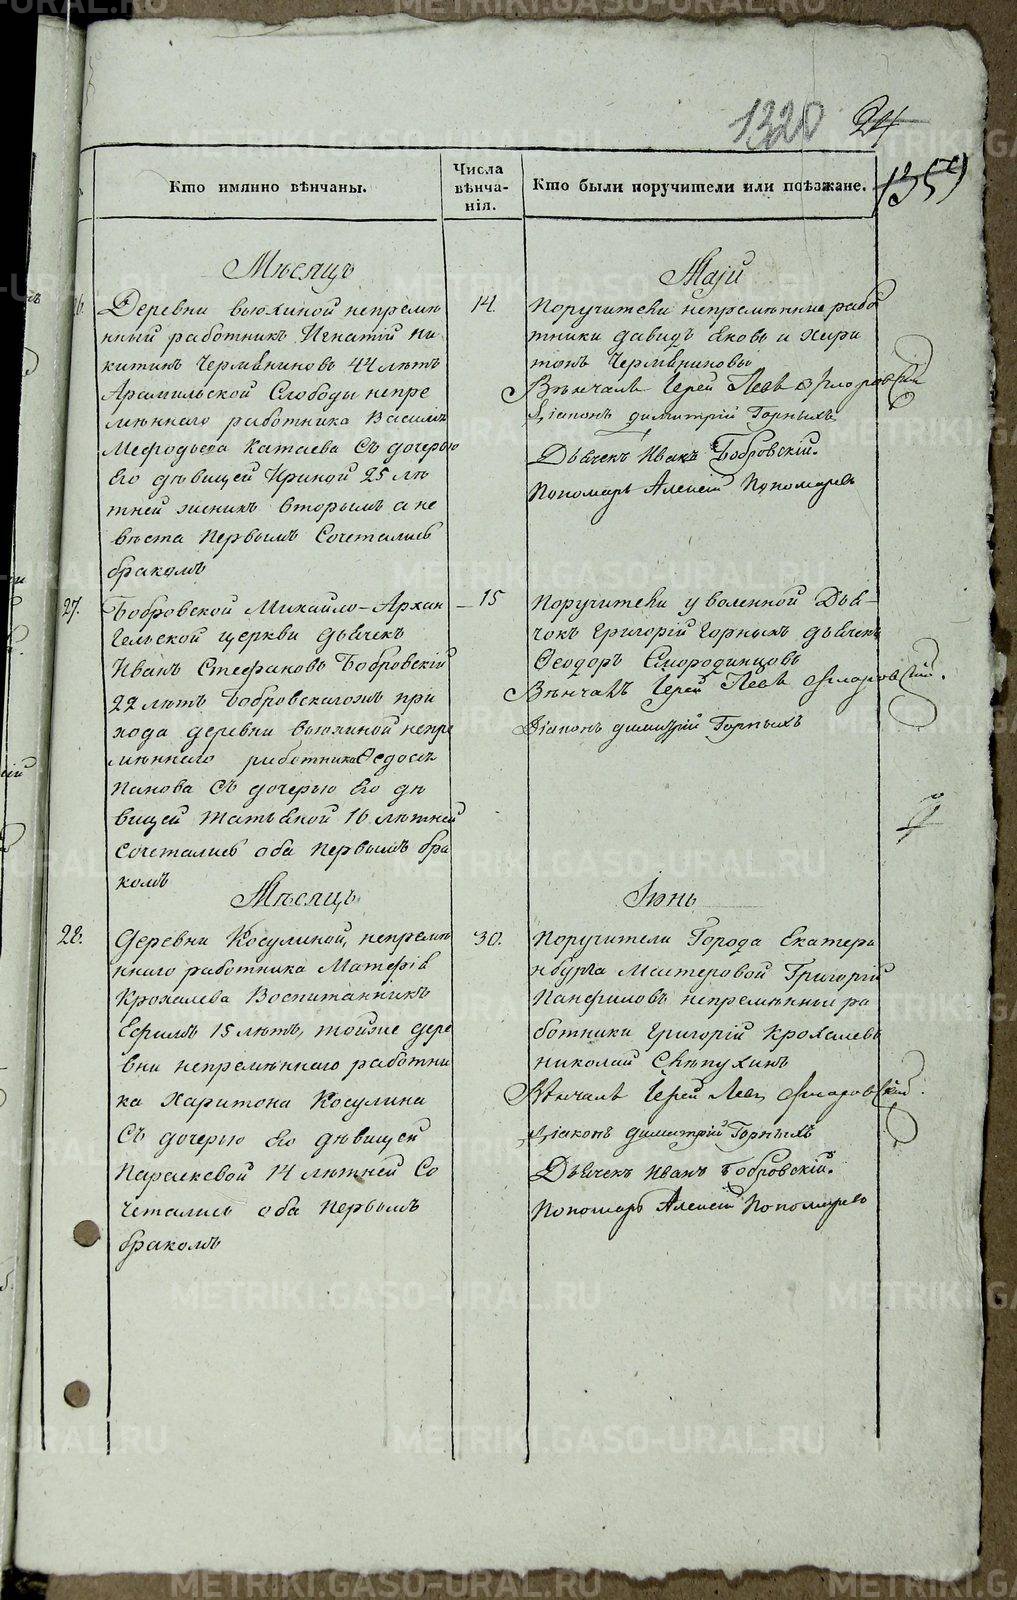 1320 24
1359
Кто имянно вѣнчаны.
Числа
вѣнча-
нія.
Кто были поручители или поѣзжане.
Мѣсяцъ
Маій
Деревни вьюхиной непремѣ
нный работникъ Игнатій Ни
китинъ Чермѣниновъ 44 лѣтъ
Арамильской Слободы непре
мѣннаго работника Василья
Мефодьева Катаева Съ дочерью
Его дѣвицей Ириной 25 лѣ
тней женихъ вторымъ а не
вѣста первымъ Сочетались
бракомъ
14.
Поручители непремѣнные рабо
тники давидъ Яковъ и Хари
тонъ Чермѣниновы
Вѣнчалъ Іерей Левъ Флоровскій
Діаконъ димитрій Горныхъ
Дьячекъ Иванъ Бобровскій.
Пономарь Алексій Пономаревъ
27.
Бобровской Михайло-Архан
гельской церкви дьячекъ
Иванъ Стефановъ Бобровскій
22 лѣтъ Бобровскагожъ при
хода деревни вьюхиной непре
мѣннаго работника Ѳедосѣя
Панова Съ дочерью Его дѣ
вицей татьяной 16 лѣтней
Сочетались оба первымъ бра
комъ
15
Поручители уволенной Дья-
чокъ григорій Горныхъ дьячекъ
Ѳеодоръ Смородинцовъ
Вѣнчалъ Іерей Левъ Флоровскій.
Діаконъ димитрій Горныхъ
Мѣсяцъ
Іюнь
28.
деревни Косулиной, непремѣ
ннаго работника Матфѣя
Крохалева Воспитанникъ
Ефимъ 15 лѣтъ, тойже дере
вни непремѣннаго работни
ка Харитона Косулина
Съ дочерью Его дѣвицей
Параскевой 14 лѣтней Со
четались оба первымъ
бракомъ
30.
Поручители Города Екатери
нбурга Мастеровой Григорій
Панфиловъ непремѣнные ра
ботники григорій Крохалевъ
николай Слѣпухинъ
Вѣнчалъ Іерей Левъ Флоровскій.
Діаконъ димитрій Горныхъ
Дьячекъ Иванъ Бобровскій.
Пономарь Алексій Пономаревъ
METRIKI.GASO-URAL.RU